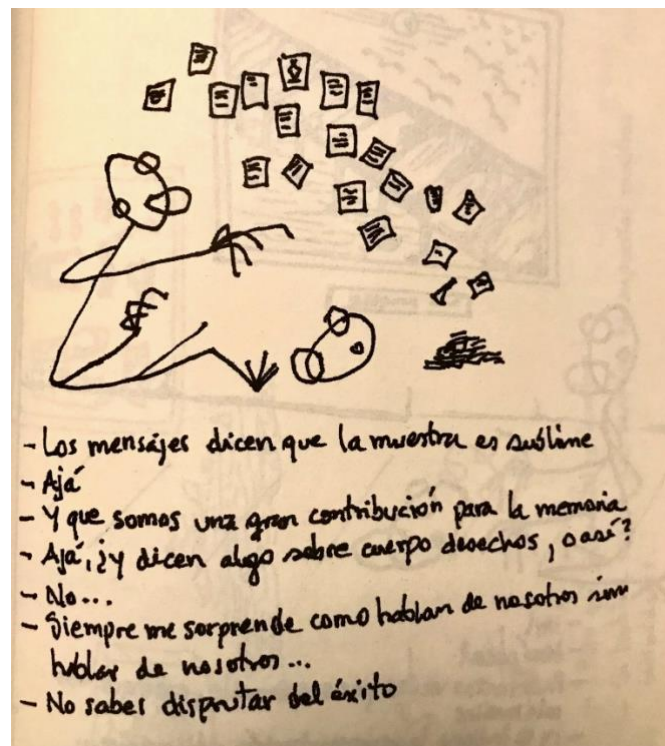 - Los mensajes dicen que la muestra es sublime
- Ajá
- Y que somos una gran contribución para la memoria
- Ajá, ¿y dicen algo sobre cuerpo desechos, o así?
- No...
- Siempre me sorprende como hablan de nosotros sin
hablar de nosotros...
- No sabes disfrutar del éxito